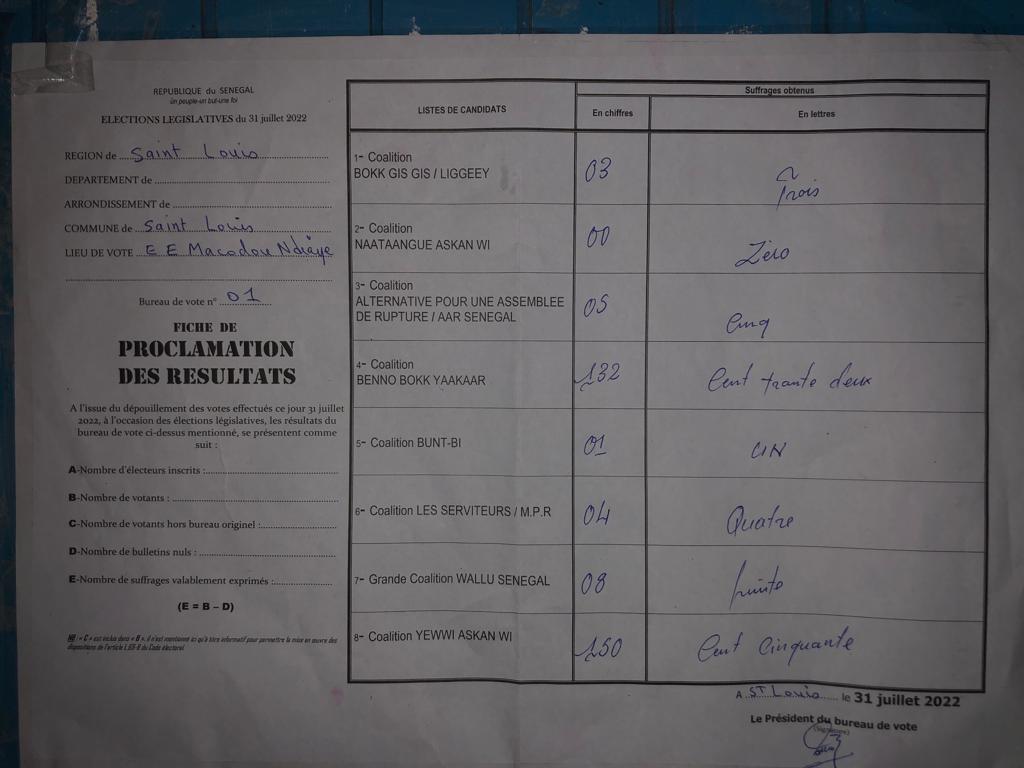 REPUBLIQUE du SENEGAL
un peuple-un but-une foi
ELECTIONS LEGISLATIVES du 31 juillet 2022
REGION de Saint Louis
DEPARTEMENT de
ARRONDISSEMENT de
COMMUNE de Saint Louis
LIEU DE VOTE E E Macodou Ndiaye
Bureau de vote n° 01
FICHE DE
PROCLAMATION
DES RESULTATS
A l'issue du dépouillement des votes effectués ce jour 31 juillet
2022, à l'occasion des élections législatives, les résultats du
bureau de vote ci-dessus mentionné, se présentent comme
suit :
A-Nombre d'électeurs inscrits :
B-Nombre de votants :
C-Nombre de votants hors bureau originel :
D-Nombre de bulletins nuls :
E-Nombre de suffrages valablement exprimés :
(E = B – D)
NB : « C » est inclus dans « B ». il n'est mentionné ici qu'à titre informatif pour permettre la mise en œuvre des
dispositions de l'article du Code électoral
LISTES DE CANDIDATS
Suffrages obtenus
En chiffres
En lettres
1- Coalition
BOKK GIS GIS / LIGGEEY
03
Trois
2- Coalition
NAATAANGUE ASKAN WI
00
Zéro
3- Coalition
ALTERNATIVE POUR UNE ASSEMBLEE
DE RUPTURE / AAR SENEGAL
05
Cinq
4- Coalition
BENNO BOKK YAAKAAR
132
Cent trante deux
5- Coalition BUNT-BI
01
UN
6- Coalition LES SERVITEURS / M.P.R
04
Quatre
7- Grande Coalition WALLU SENEGAL
08
huite
8- Coalition YEWWI ASKAN WI
150
Cent Cinquante
A ST Louis le 31 juillet 2022
Le Président du bureau de vote
(Signature)